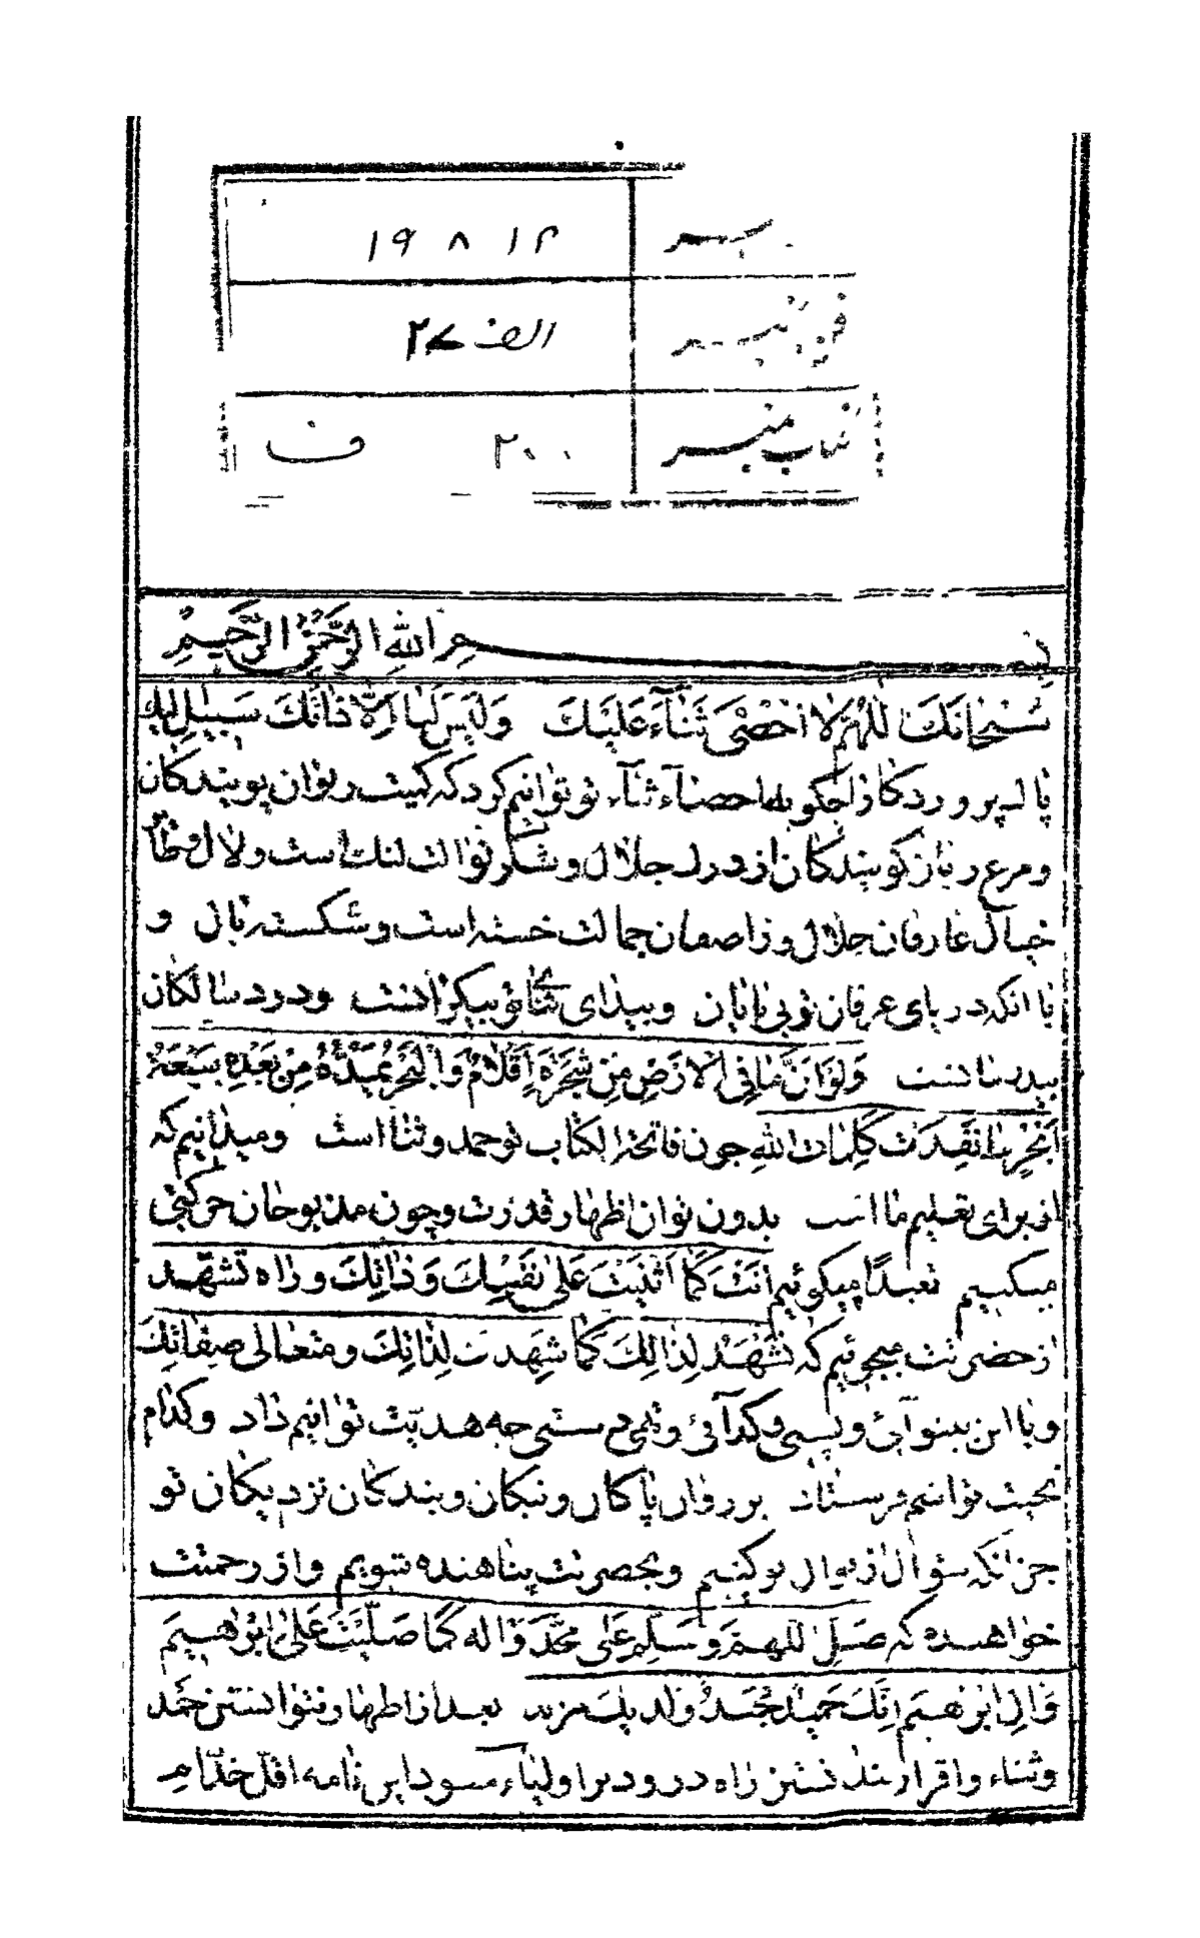 ۱۹۸۱۲
الف ۲۷
کتاب نمبر ۲۰۰ ف
بسم الله الرحمن الرحیم
سُبْحَانَكَ اللهُمَّ لا اُحْصِی ثَنَآءَ عَلَیْكَ وَلَیْسَ لَنا اِلّا ذاتِكَ سَبیل الیك
پروردکارا چکونه احصآء ثنآء تو توانیم کرد که کمیت زبوان پویندکان
و مرغ زبان کویندکان از درك جلال و شکر نوالت لنك است و لال و طایر
خیال عارفان جلال و واصفان جمالت خسته است و شکسته بال و
با انکه دریای عرفان تو بی پایان و بیدای ثنای تو بیکرانست و درد سالکان
بیدرمانست وَلَوْ اَنَّ ما فِی الْاَرْضِ مِنْ شَجَرَةٍ اَقْلامٌ وَ الْبَحْرُ یَمُدُّهُ مِنْ بَعْدِهِ سَبْعَةُ
اَبْحُرٍ ما نَفِدَتْ كَلِماتُ اللهِ چون فاتحة الکتاب تو حمد و ثنا است و میدانیم که
از برای تعلیم ما است بدون توان اظهار قدرت و چون مذبوحان حرکتی
میکنیم تعبدًا میکوئیم اَنْتَ كَما اَثْنَیْتَ عَلی نَفْسِكَ وَ ذاتِكَ و راه تشهّد
از حضرتت میجوئیم که نَشْهَدُ لِذالِكَ كَما شَهِدتَ لِذاتِكَ و متعالی صِفاتِكَ
و با این بینوآئی و پستی و کدآئی و تهی دستی چه هدیّت توانیم داد و کدام
تحیت توانیم فرستاد بر روان پاکان و نیکان و بندکان نزدیکان تو
جز انکه سؤال از نوال تو کنیم و بحضرتت پناهنده شویم و از رحمتت
خواهنده که صَلِّ اللهمَّ وَ سَلِّم عَلی محَمَّد وَ اله كَما صَلَّیْتَ عَلی ابْراهیمَ
وَ الِ ابْرهیمَ اِنَّكَ حَمیدٌ مَجیدٌ وَ لدیك مزید بعد از اظهار نتوانستن حَمد
و ثناء و اقرار بند نستن راه درود بر اولیآء مسود این نامه اقلّ خدّام